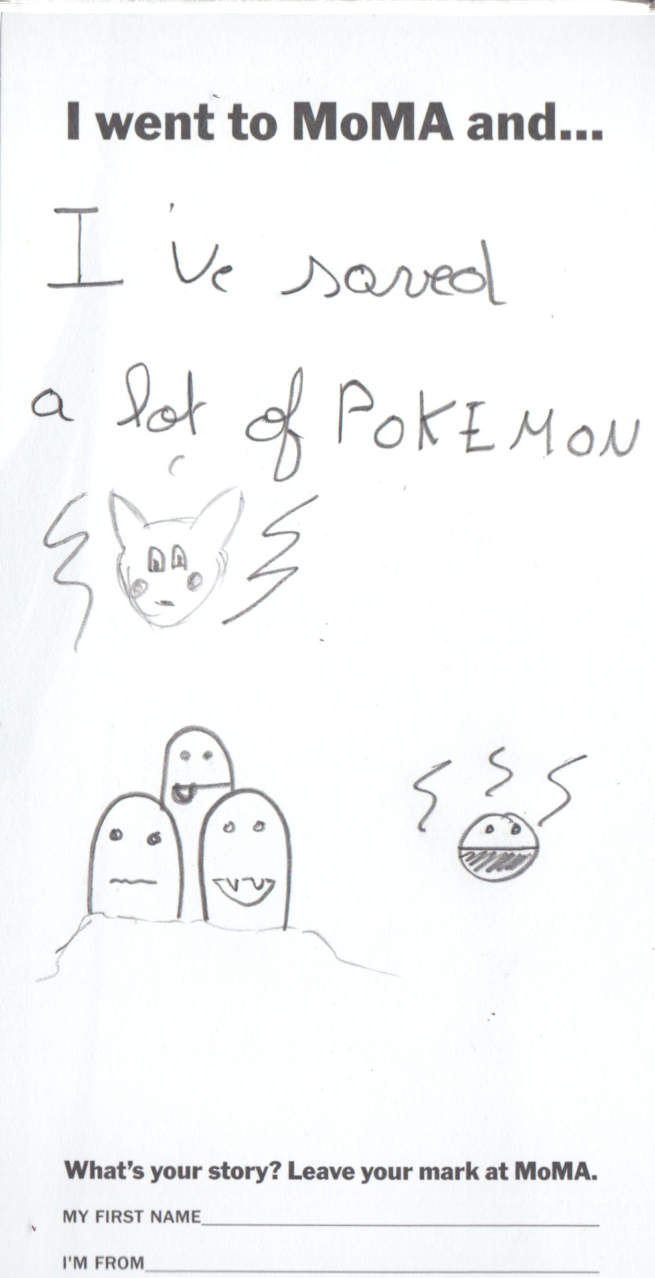 I went to MoMA and...
I've saved
a lot of POKEMON
What's your story? Leave your mark at MoMA.
MY FIRST NAME
I'M FROM